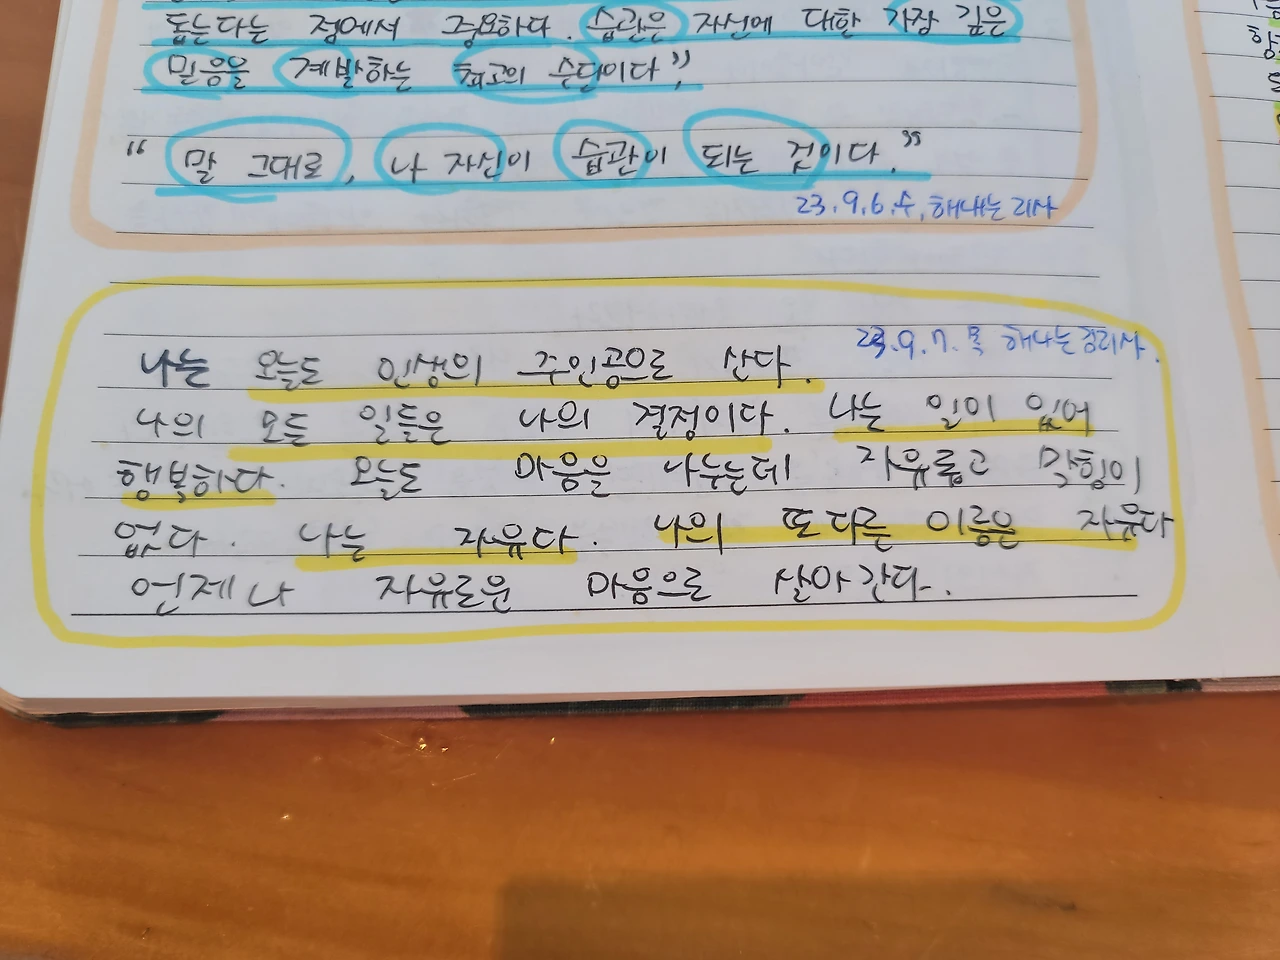 돕는다는 점에서 중요하다. 습관은 자신에 대한 가장 깊은
믿음을 계발하는 최고의 수단이다"
" 말 그대로, 나 자신이 습관이 되는 것이다."
23.9.6.수, 해내는 리사
23.9.7.목 해나는 리사.
나는 오늘도 인생의 주인공으로 산다.
나의 모든 일들은 나의 결정이다. 나는 일이 있어
행복하다. 오늘도 마음을 나누는데 자유롭고 막힘이
없다. 나는 자유다. 나의 또 다른 이름은 자유다
언제나 자유로운 마음으로 살아간다.